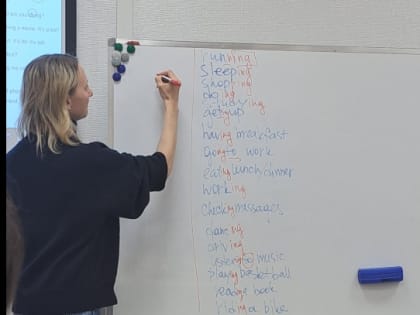 running
sleeping
shopping
studying
getting up
having breakfast
going to work
eating lunch dinner
working
checking messages
dancing
driving
listening to music
playing basketball
reading book
riding a bike